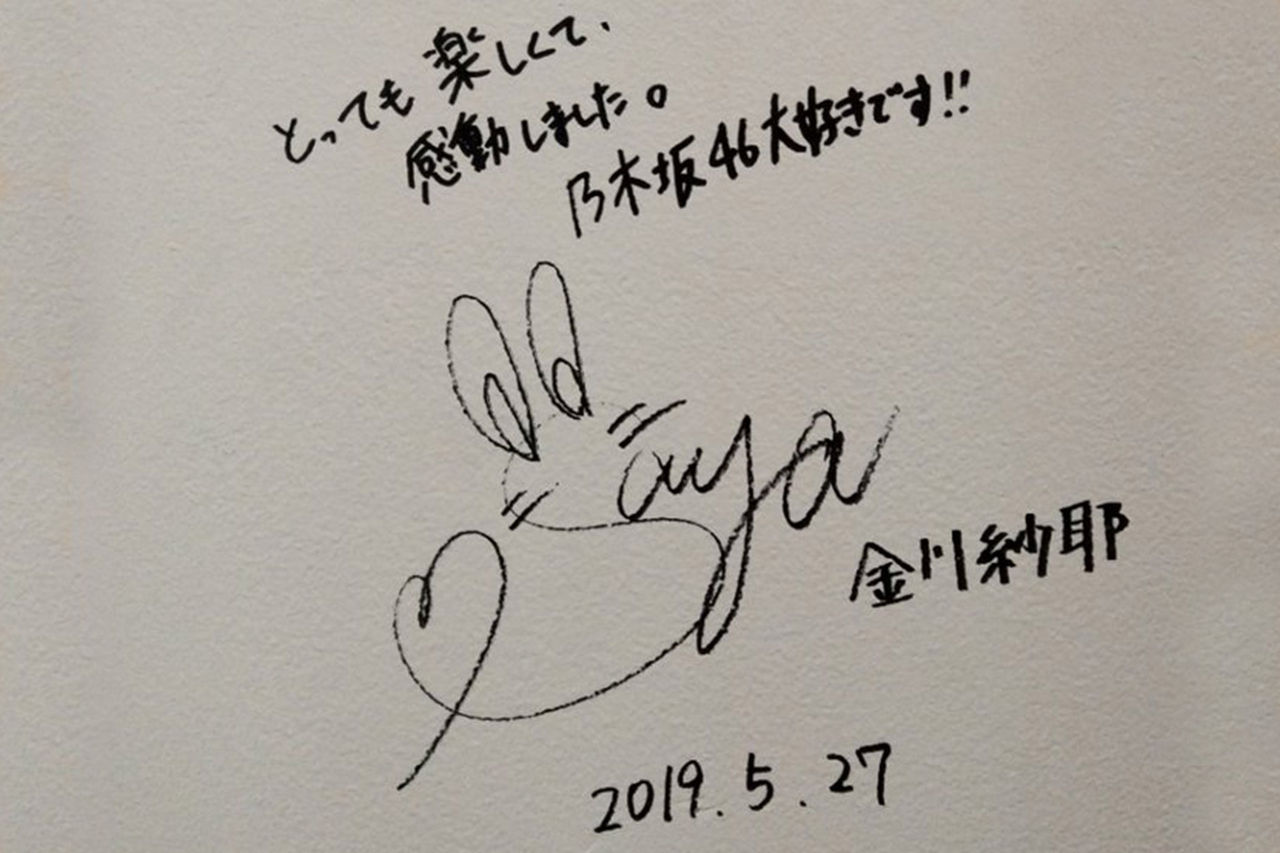 とっても楽しくて、
感動しました。
乃木坂46大好きです!!
Saya
金川紗耶
2019.5.27